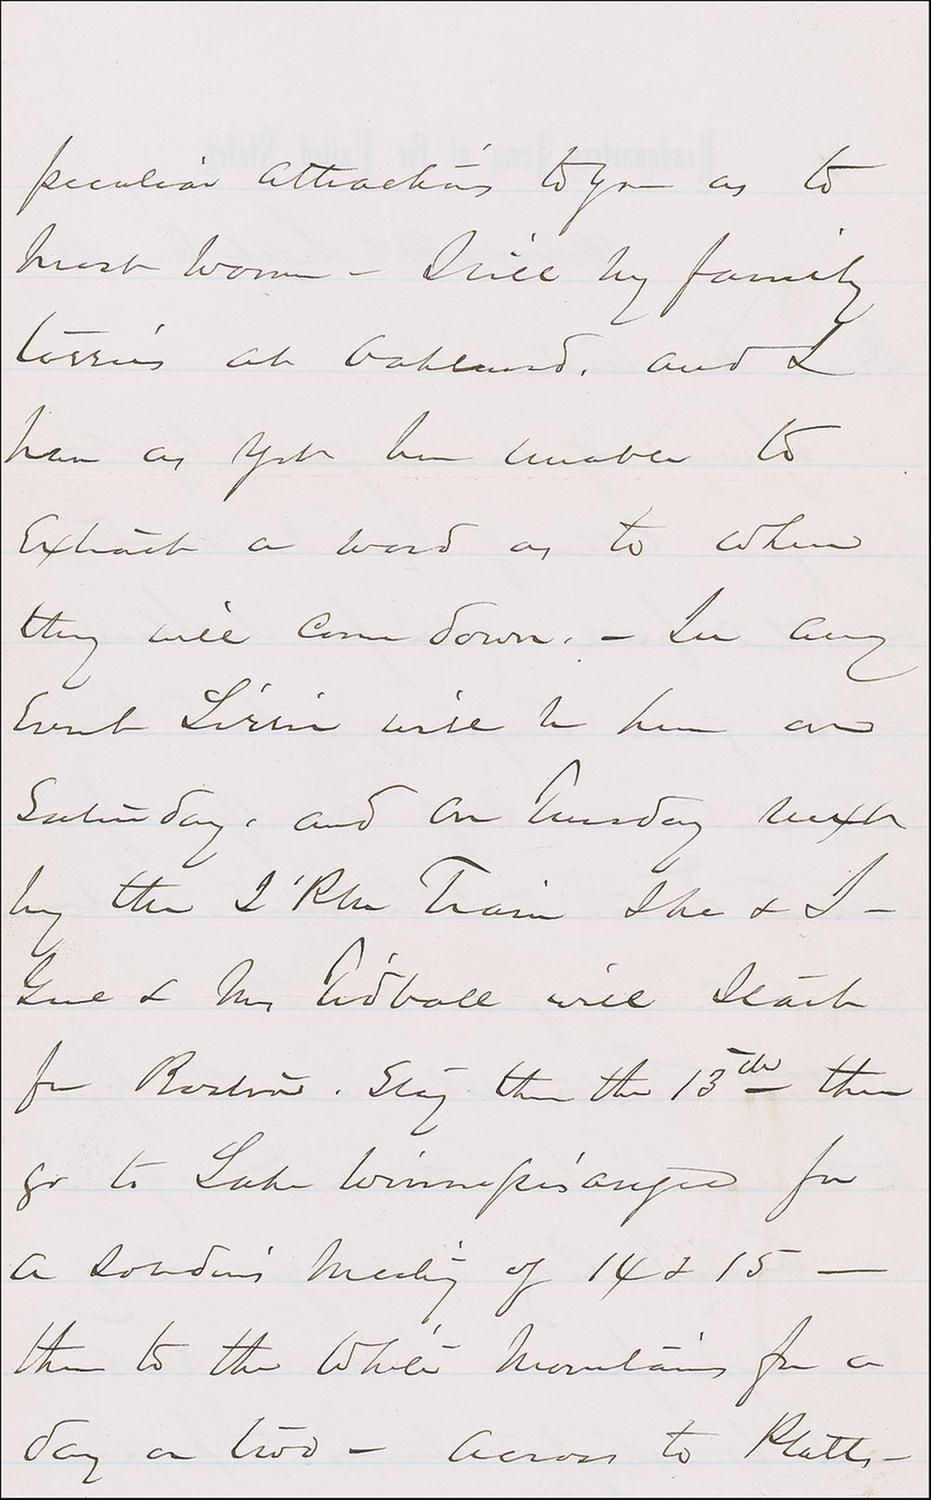 peculiar attractions to you as to
most women – Still my family
tarries at Oakland. and I
have as yet been unable to
extract a word as to when
they will come down. – In any
Event Lizzie will be here on
Saturday. and on Tuesday next
by the 2 PM Train She & I –
Genl & Mrs Tidball will Start
for Boston. Stay there the 13th then
go to Lake Winnepisaugee for
a Soldiers Meeting of 14 & 15 —
then to the White Mountains for a
day or two – across to Platts–